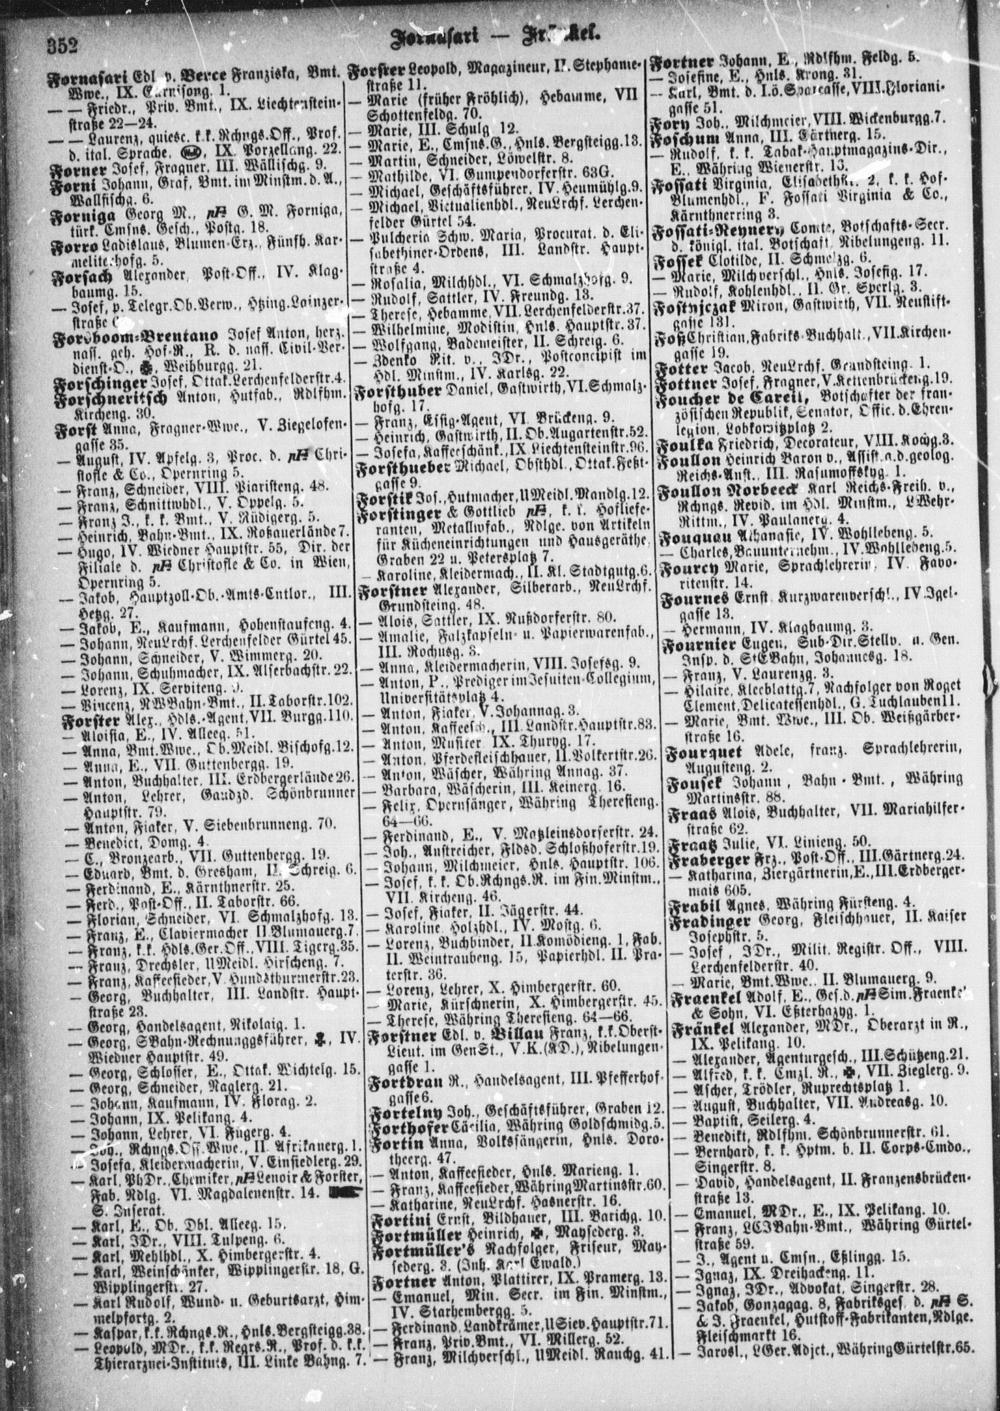 352
Fornasari — Fränkel.
Fornasari Edl. v. Verce Franziska, Bmt.
Wwe., IX. Garnisong. 1.
— — Friedr., Priv. Bmt., IX. Liechtenstein-
straße 22—24.
— — Laurenz, quiesc. k.k. Rchngs.Off., Prof.
d. ital. Sprache, IX. Porzellang. 22.
Forner Josef, Fragner, III. Wällischg. 9.
Forni Johann, Graf, Bmt. im Minstm. d. A.,
Wallfischg. 6.
Forniga Georg M., G. M. Forniga,
türk. Cmsns. Gesch., Postg. 18.
Forro Ladislaus, Blumen-Erz., Fünfh. Kar-
meliterhofg. 5.
Forsach Alexander, Post-Off., IV. Klag-
baumg. 15.
— Josef, p. Telegr.Ob.Verw., Htzing. Lainzer-
straße
Forsboom-Brentano Josef Anton, herz.
nass. geh. Hof-R., R. d. nass. Civil-Ver-
dienst-O., ✠, Weihburgg. 21.
Forschinger Josef, Ottak. Lerchenfelderstr. 4.
Forschneritsch Anton, Hutfab., Rdlfhm.
Kircheng. 30.
Forst Anna, Fragner-Wwe., V. Ziegelofen-
gasse 35.
— August, IV. Apfelg. 3, Proc. d. Chri-
stofle & Co., Opernring 5.
— Franz, Schneider, VIII. Piaristeng. 48.
— Franz, Schnittwhdl., V. Oppelg. 5.
— Franz J., k. k. Bmt., V. Rüdigerg. 5.
— Heinrich, Bahn-Bmt., IX. Roßauerlände 7.
— Hugo, IV. Wiedner Hauptstr. 55, Dir. der
Filiale d. Christofle & Co. in Wien,
Opernring 5.
— Jakob, Hauptzoll-Ob.-Amts-Cntlor., III.
Hetzg. 27.
— Jakob, E., Kaufmann, Hohenstaufeng. 4.
— Johann, NeuLrchf. Lerchenfelder Gürtel 45.
— Johann, Schneider, V. Wimmerg. 20.
— Johann, Schuhmacher, IX. Alserbachstr. 22.
— Lorenz, IX. Serviteng.
— Vincenz, NWBahn-Bmt., II. Taborstr. 102.
Forster Alex., Hdls.-Agent, VII. Burgg. 110.
— Aloisia, E., IV. Alleeg. 51.
— Anna, Bmt.Wwe., Ob.Meidl. Bischofg. 12.
— Anna, E., VII. Guttenbergg. 19.
— Anton, Buchhalter, III. Erdbergerlände 26.
— Anton, Lehrer, Gaudzd. Schönbrunner
Hauptstr. 79.
— Anton, Fiaker, V. Siebenbrunneng. 70.
— Benedict, Domg. 4.
— C., Bronzearb., VII. Guttenbergg. 19.
— Eduard, Bmt. d. Gresham, II. Schreig. 6.
— Ferdinand, E., Kärnthnerstr. 25.
— Ferd., Post-Off., II. Taborstr. 66.
— Florian, Schneider, VI. Schmalzhofg. 13.
— Franz, E., Claviermacher II. Blumauerg. 7.
— Franz, k.k. Hdls.Ger.Off., VIII. Tigerg. 35.
— Franz, Drechsler, UMeidl. Hirscheng. 7.
— Franz, Kaffeesieder, V. Hundsthurmerstr. 23.
— Georg, Buchhalter, III. Landstr. Haupt-
straße 23.
— Georg, Handelsagent, Nikolaig. 1.
— Georg, SBahn-Rechnungsführer, IV.
Wiedner Hauptstr. 49.
— Georg, Schlosser, E., Ottak. Wichtelg. 15.
— Georg, Schneider, Naglerg. 21.
— Johann, Kaufmann, IV. Florag. 2.
— Johann, IX. Pelikang. 4.
— Johann, Lehrer, VI. Fügerg. 4.
— Joh., Rchngs.Off.Wwe., II. Afrikanerg. 1.
— Josefa, Kleidermacherin, V. Einsiedlerg. 29.
— Karl, PhDr., Chemiker, Lenoir & Forster,
Fab. Ndlg. VI. Magdalenenstr. 14.
S. Inserat.
— Karl, E., Ob. Dbl. Alleeg. 15.
— Karl, JDr., VIII. Tulpeng. 6.
— Karl, Mehlhdl., X. Himbergerstr. 4.
— Karl, Weinschänker, Wipplingerstr. 18, G.
Wipplingerstr. 27.
— Karl Rudolf, Wund- u. Geburtsarzt, Him-
melpfortg. 2.
— Kaspar, k.k. Rchngs.R., Hnls. Bergsteigg. 38.
— Leopold, MDr., k.k. Regrs.R., Prof. d. k.k.
Thierarznei-Instituts, III. Linke Bahng. 7.
Forster Leopold, Magazineur, II. Stephanie-
straße 11.
— Marie (früher Fröhlich), Hebamme, VII
Schottenfeldg. 70.
— Marie, III. Schulg 12.
— Marie, E., Cmsns.G., Hnls. Bergsteigg. 13.
— Martin, Schneider, Löwelstr. 8.
— Mathilde, VI. Gumpendorferstr. 63G.
— Michael, Geschäftsführer, IV. Heumühlg. 9.
— Michael, Victualienhdl., NeuLrchf. Lerchen-
felder Gürtel 54.
— Pulcheria Schw. Maria, Procurat. d. Eli-
sabethiner-Ordens, III. Landstr. Haupt-
straße 4.
— Rosalia, Milchhdl., VI. Schmalzhofg. 9.
— Rudolf, Sattler, IV. Freundg. 13.
— Therese, Hebamme, VII. Lerchenfelderstr. 37.
— Wilhelmine, Modistin, Hnls. Hauptstr. 37.
— Wolfgang, Bademeister, II. Schreig. 6.
— Zdenko Rit. v., JDr., Postconcipist im
Hdl. Minstm., IV. Karlsg. 22.
Forsthuber Daniel, Gastwirth, VI. Schmalz-
hofg. 17.
— Franz, Essig-Agent, VI. Brückeng. 9.
— Heinrich, Gastwirth, II. Ob. Augartenstr. 52.
— Josefa, Kaffeeschänk., IX. Liechtensteinstr. 96.
Forsthueber Michael, Obsthdl., Ottak. Feßt-
gasse 9.
Forstik Jos., Hutmacher, UMeidl. Mandlg. 12.
Forstinger & Gottlieb, k. k. Hofliefe-
ranten, Metallwfab., Ndlge. von Artikeln
für Kücheneinrichtungen und Hausgeräthe,
Graben 22 u. Petersplatz 7.
— Karoline, Kleidermach., II. Kl. Stadtgutg. 6.
Forstner Alexander, Silberarb., NeuLrchf.
Grundsteing. 48.
— Alois, Sattler, IX. Nußdorferstr. 80.
— Amalie, Falzkapseln- u. Papierwarenfab.,
III. Rochusg. 3.
— Anna, Kleidermacherin, VIII. Josefsg. 9.
— Anton, P., Prediger im Jesuiten-Collegium,
Universitätsplatz 4.
— Anton, Fiaker, V. Johannag. 3.
— Anton, Kaffeesch., III. Landstr. Hauptstr. 83.
— Anton, Musiker IX. Thuryg. 17.
— Anton, Pferdefleischhauer, II. Volkertstr. 26.
— Anton, Wäscher, Währing Annag. 37.
— Barbara, Wäscherin, III. Keinerg. 16.
— Felix, Opernsänger, Währing Theresieng.
64—66.
— Ferdinand, E., V. Matzleinsdorferstr. 24.
— Joh., Anstreicher, Fldsd. Schloßhoferstr. 19.
— Johann, Milchmeier, Hnls. Hauptstr. 106.
— Josef, k. k. Ob.Rchngs.R. im Fin.Minstm.,
VII. Kircheng. 46.
— Josef, Fiaker, II. Jägerstr. 44.
— Karoline Holzhdl., IV. Mostg. 6.
— Lorenz, Buchbinder, II. Komödieng. 1, Fab.
II. Weintraubeng. 15, Papierhdl. II. Pra-
terstr. 36.
— Lorenz, Lehrer, X. Himbergerstr. 60.
— Marie, Kürschnerin, X. Himbergerstr. 45.
— Therese, Währing Theresieng. 64—66.
Forstner Edl. v. Billau Franz, k.k. Oberst-
Lieut. im GenSt., V.K.(KD.), Nibelungen-
gasse 1.
Fortdran R., Handelsagent, III. Pfefferhof-
gasse 6.
Fortelny Joh., Geschäftsführer, Graben 12.
Forthofer Cäcilia, Währing Goldschmidg. 5.
Fortin Anna, Volkssängerin, Hnls. Doro-
theerg. 47.
— Anton, Kaffeesieder, Hnls. Marieng. 1.
— Franz, Kaffeesieder, Währing Martinsstr. 60.
— Katharine, NeuLrchf. Hasnerstr. 16.
Fortini Ernst, Bildhauer, III. Barichg. 10.
Fortmüller Heinrich, ✠, Maysederg. 3.
Fortmüller's Nachfolger, Friseur, May-
sederg. 3. (Inh. Karl Ewald.)
Fortner Anton, Plattirer, IX. Pramerg. 13.
— Emanuel, Min. Secr. im Fin. Minstm.,
IV. Starhembergg. 5.
— Ferdinand, Landkrämer, USiev. Hauptstr. 71.
— Franz, Priv. Bmt., VI. Millerg. 52.
— Franz, Milchverschl., UMeidl. Rauchg. 41.
Fortner Johann, E., Rdlfhm. Feldg. 5.
— Josefine, E., Hnls. Krong. 31.
— Karl, Bmt. d. I.ö. Sparcasse, VIII. Floriani-
gasse 51.
Fory Joh., Milchmeier, VIII. Wickenburgg. 7.
Foschum Anna, III. Gärtnerg. 15.
— Rudolf, k. k. Tabak-Hauptmagazins-Dir.,
E., Währing Wienerstr. 13.
Fossati Virginia, Elisabethstr. 2, k. k. Hof-
Blumenhdl., F. Fossati Virginia & Co.,
Kärnthnerring 3.
Fossati-Reyneri, Comte, Botschafts-Secr.
d. königl. ital. Botschaft, Nibelungeng. 11.
Fossek Clotilde, II. Schmelzg. 6.
— Marie, Milchverschl., Hnls. Josefig. 17.
— Rudolf, Kohlenhdl., II. Gr. Sperlg. 3.
Fostnjczak Miron, Gastwirth, VII. Neustift-
gasse 131.
Foß Christian, Fabriks-Buchhalt., VII. Kirchen-
gasse 19.
Fotter Jacob, NeuLrchf. Grundsteing. 1.
Fottner Josef, Fragner, V. Kettenbrückeng. 19.
Foucher de Careil, Botschafter der fran-
zösischen Republik, Senator, Offic. d. Ehren-
legion, Lobkowitzplatz 2.
Foulka Friedrich, Decorateur, VIII. Kochg. 3.
Foullon Heinrich Baron v., Assist. a. d. geolog.
Reichs-Anst., III. Rasumoffskyg. 1.
Foullon Norbeeck Karl Reichs-Freih. v.,
Rchngs. Revid. im Hdl. Minstm., LWehr-
Rittm., IV. Paulanerg. 4.
Fouquau Athanasie, IV. Wohllebeng. 5.
— Charles, Bauunternehm., IV. Wohllebeng. 5.
Fourcy Marie, Sprachlehrerin, IV. Favo-
ritenstr. 14.
Fournes Ernst, Kurzwarenverschl., IV. Igel-
gasse 13.
— Hermann, IV. Klagbaumg. 3.
Fournier Eugen, Sub-Dir.Stellv. u. Gen.
Insp. d. StEBahn, Johannesg. 18.
— Franz, V. Laurenzg. 3.
— Hilaire, Kleeblattg. 7, Nachfolger von Roget
Clement, Delicatessenhdl., G. Tuchlauben 11.
— Marie, Bmt. Wwe., III. Ob. Weißgärber-
straße 16.
Fourquet Adele, franz. Sprachlehrerin,
Augusteng. 2.
Fousek Johann, Bahn-Bmt., Währing
Martinsstr. 88.
Fraas Alois, Buchhalter, VII. Mariahilfer-
straße 62.
Fraatz Julie, VI. Linieng. 50.
Fraberger Frz., Post-Off., III. Gärtnerg. 24.
— Katharina, Ziergärtnerin, E., III. Erdberger-
mais 605.
Frabil Agnes, Währing Fürsteng. 4.
Fradinger Georg, Fleischhauer, II. Kaiser
Josephstr. 5.
— Josef, JDr., Milit. Registr. Off., VIII.
Lerchenfelderstr. 40.
— Marie, Bmt. Wwe. II. Blumauerg. 9.
Fraenkel Adolf, E., Ges. d. Sim. Fraenkel
& Sohn, VI. Eßterhazyg. 1.
Fränkel Alexander, MDr., Oberarzt in R.,
IX. Pelikang. 10.
— Alexander, Agenturgesch., III. Schützeng. 21.
— Alfred, k. k. Cmzl. R., ✠, VII. Zieglerg. 9.
— Ascher, Trödler, Ruprechtsplatz 1.
— August, Buchhalter, VII. Andreasg. 10.
— Baptist, Seilerg. 4.
— Benedikt, Rdlfhm. Schönbrunnerstr. 61.
— Bernhard, k. k. Hptm. b. II. Corps-Cmdo.,
Singerstr. 8.
— David, Handelsagent, II. Franzensbrücken-
straße 13.
— Emanuel, MDr., E., IX. Pelikang. 10.
— Franz, LCJBahn-Bmt., Währing Gürtel-
straße 59.
— J., Agent u. Cmsn., Eßlingg. 15.
— Ignaz, IX. Dreihackeng. 11.
— Ignaz, JDr., Advokat, Singerstr. 28.
— Jakob, Gonzagag. 8, Fabriksges. d. S.
& J. Fraenkel, Hutstoff-Fabrikanten, Ndlge.
Fleischmarkt 16.
— Jarosl., LGer.Adjct., Währing Gürtelstr. 65.